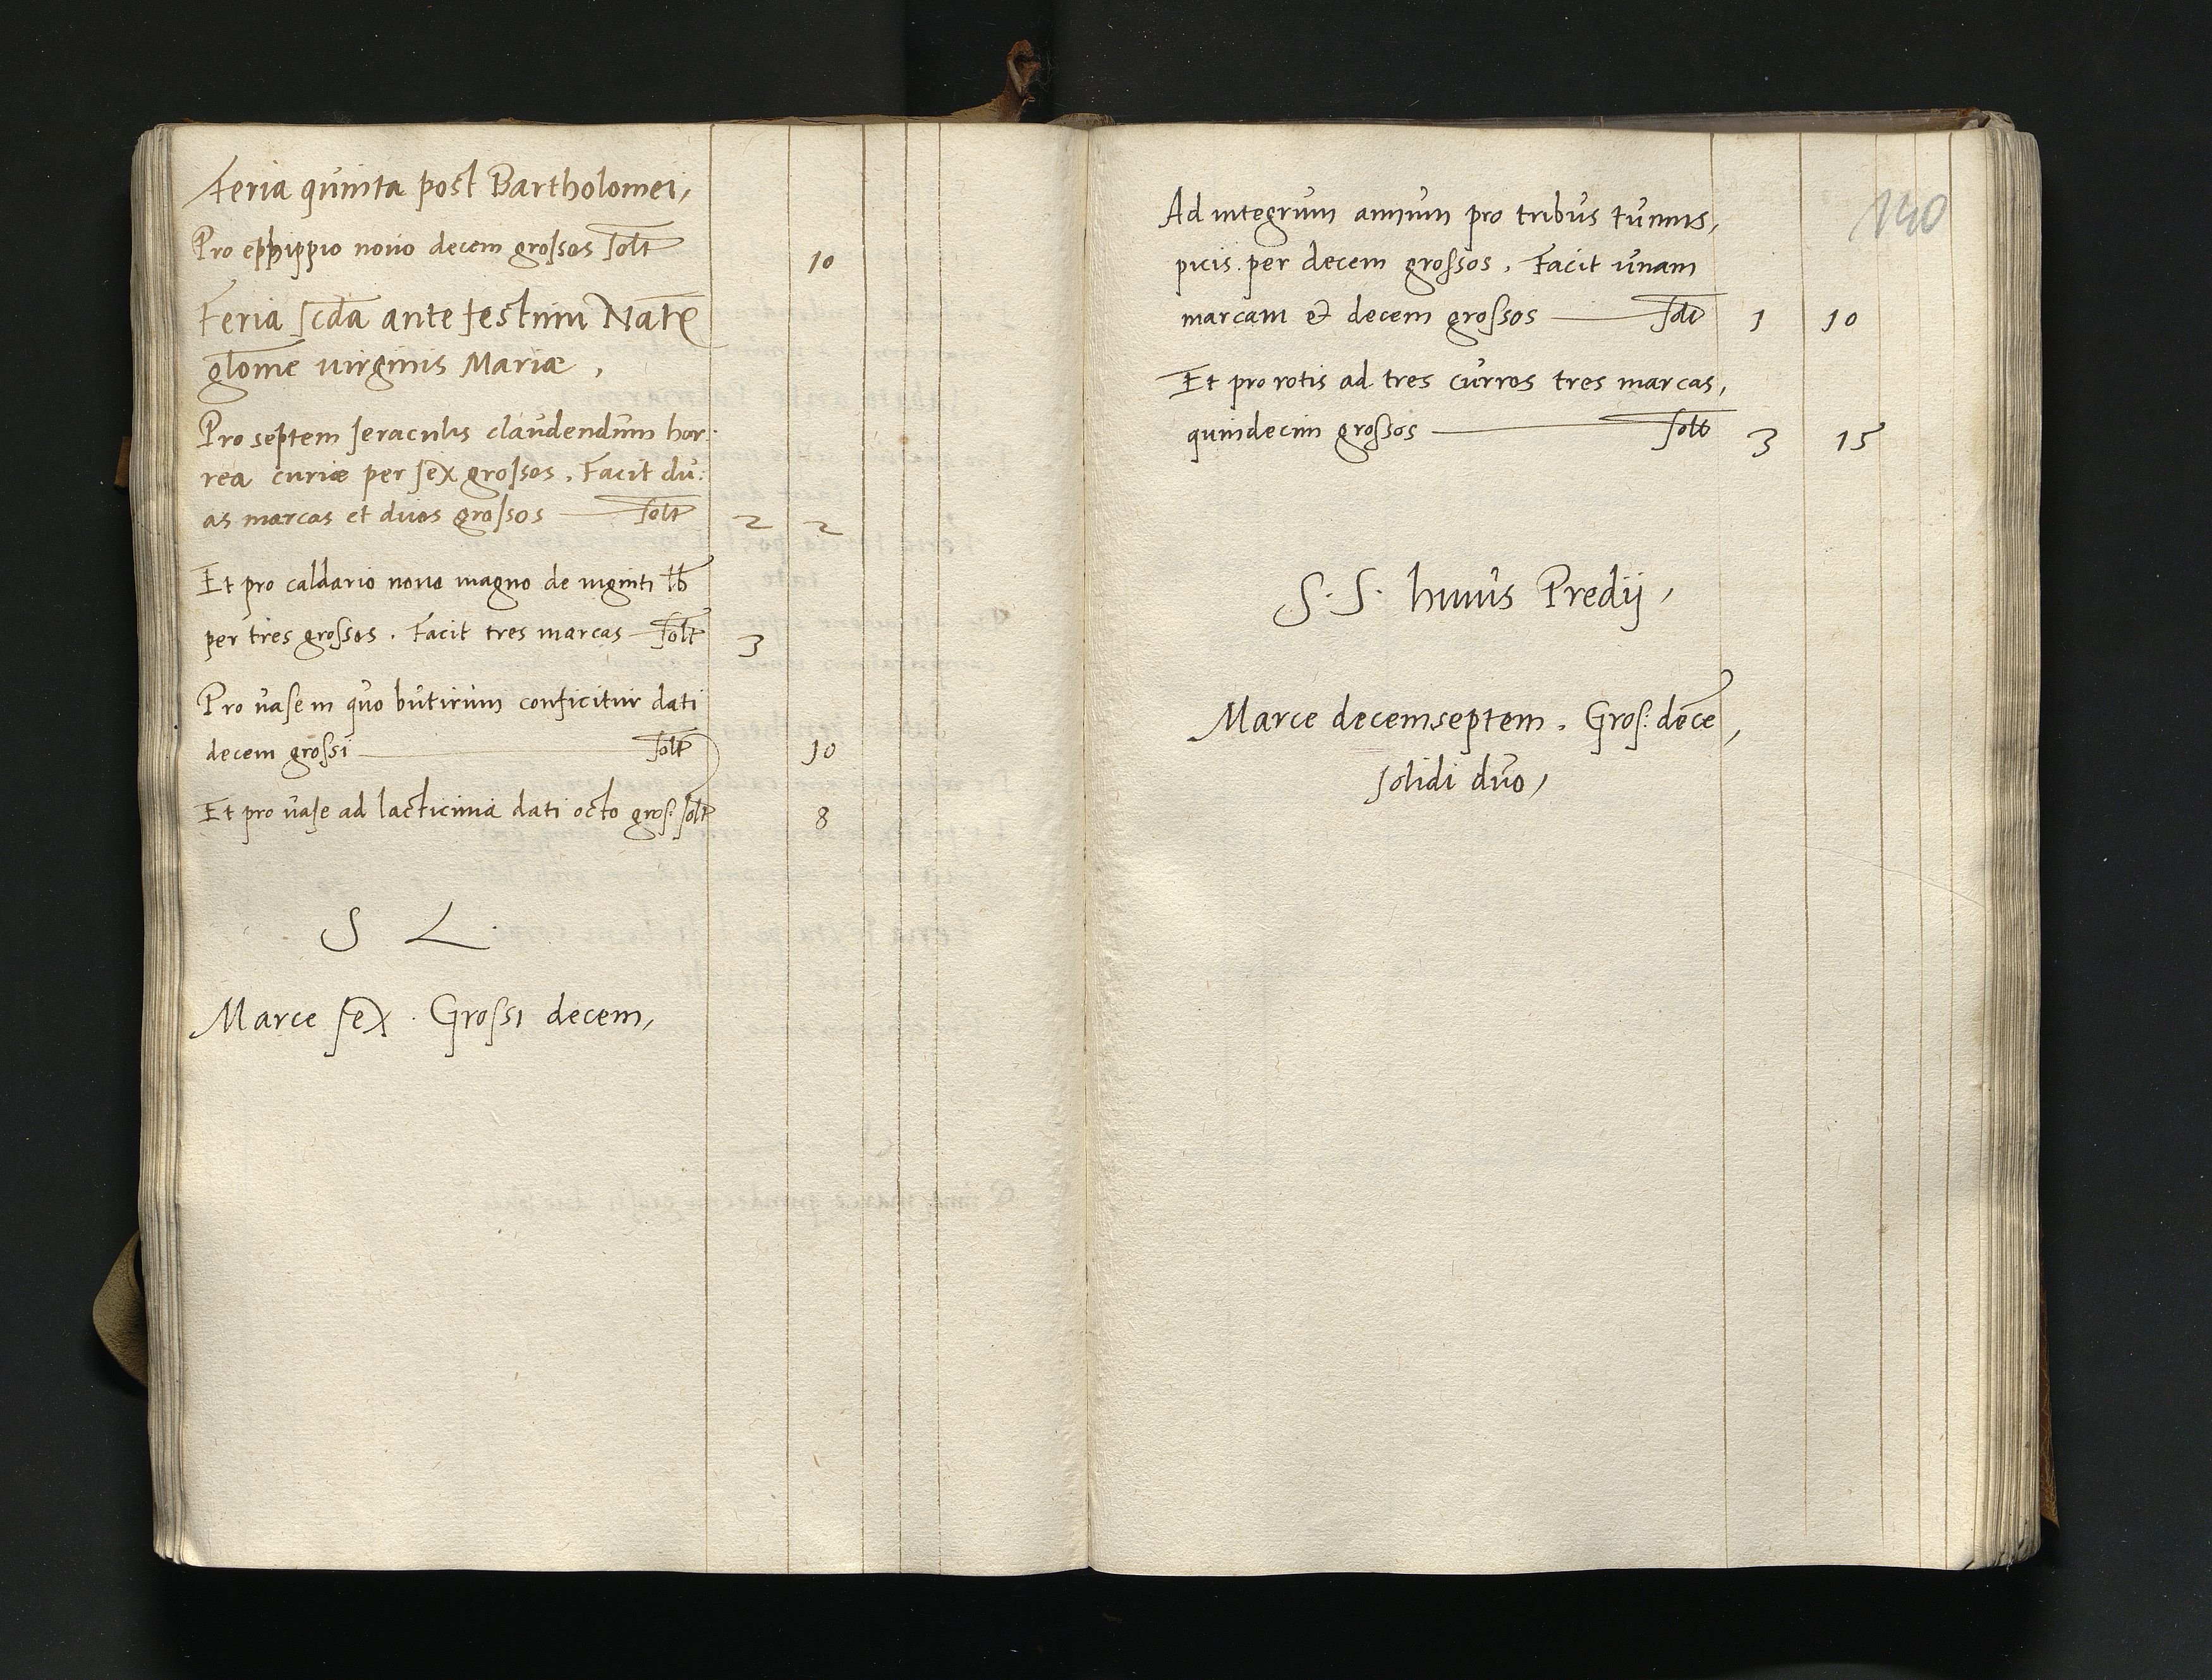 Feria quinta post Bartholomei,
Pro ephippio novo decem grossos solt 10
Feria scda ante festum Nat
glome virginis Mariæ,
Pro septem seraculis claudendum hor:
rea curiæ per sex grossos. Facit du:
as marcas et duos grossos solt 2 2
Et pro caldario novo magno de viginti lb
per tres grossos. Facit tres marcas solt 3
Pro vase in quo butirum conficitur dati
decem grossi solt 10
Et pro vase ad lacticinia dati octo gros: solt 8
S L.
Marce sex. Grossi decem,
140
Ad integrum annum pro tribus tunnis,
picis. per decem grossos. Facit unam
marcam & decem grossos solt 1 10
Et pro rotis ad tres curros tres marcas,
quindecim grossos solt 3 15
S. S. huius Predij,
Marce decemseptem. Gros: dece,
solidi duo,